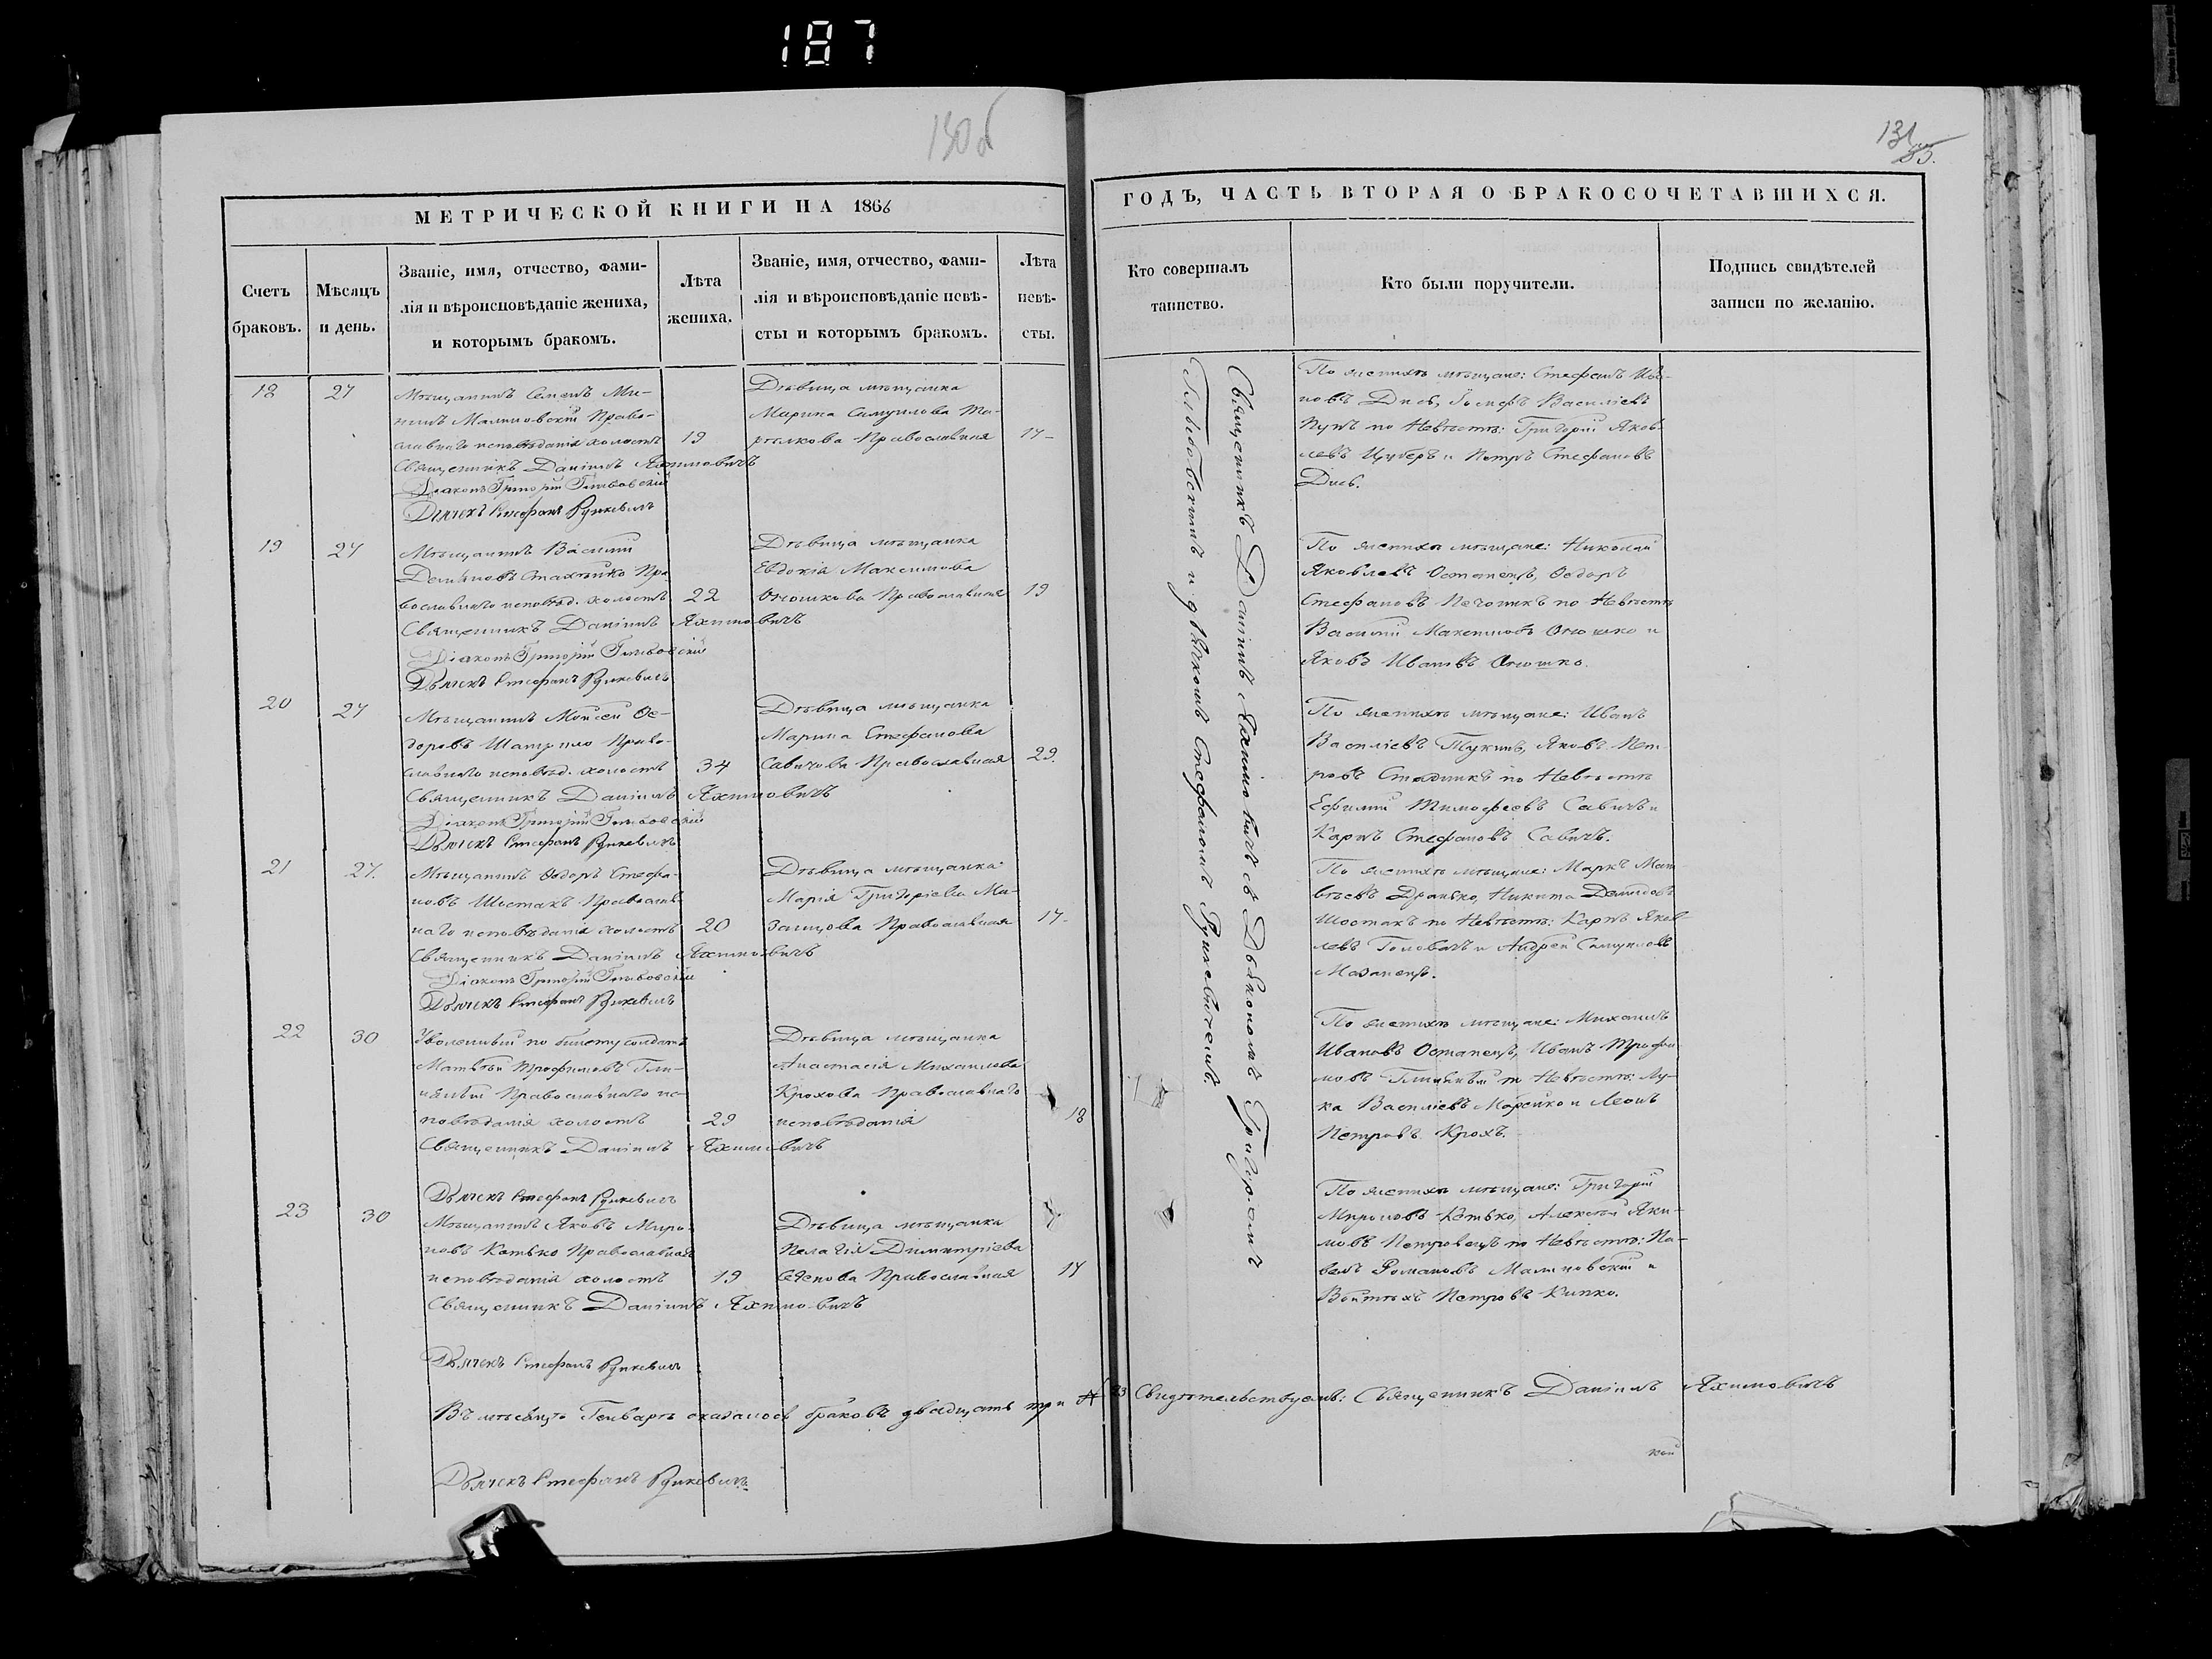 187
130 б
131
85.
МЕТРИЧЕСКОЙ КНИГИ НА 1866
ГОДЪ, ЧАСТЬ ВТОРАЯ О БРАКОСОЧЕТАВШИХСЯ.
Счетъ браковъ.
Мѣсяцъ и день.
Званіе, имя, отчество, фами-
лія и вѣроисповѣданіе жениха,
и которымъ бракомъ.
Лѣта жениха.
Званіе, имя, отчество, фами-
лія и вѣроисповѣданіе невѣ-
сты и которымъ бракомъ.
Лѣта невѣ-
сты.
Кто совершалъ
таинство.
Кто были поручители.
Подпись свидѣтелей
записи по желанію.
18 27
Мѣщанинъ Семенъ Ми-
нинъ Малиновскій Право-
славнаго исповѣданія холостъ 19
Священникъ Даніилъ Яхимовичъ
Діаконъ Григорій
Дьячекъ Стефанъ
Дѣвица мѣщанка
Марина Самуилова
Православная 17
По женихѣ мѣщане: Стефанъ Ива-
новъ Василіевъ
по Невѣстѣ: Григорій Яков-
левъ и Петръ Стефановъ
19 27
Мѣщанинъ Василій
Демьяновъ Стахейко Пра
вославнаго исповѣд. холостъ 22
Священникъ Даніилъ Яхимовичъ
Діаконъ Григорій
Дьячекъ Стефанъ
Дѣвица мѣщанка
Евдокія Максимова
Православная 19
По женихѣ мѣщане: Николай
Яковлевъ Остапецъ, Ѳедоръ
Стефановъ по Невѣстѣ
Василій Максимовъ и
Яковъ Ивановъ
20 27
Мѣщанинъ Моисей Ѳе-
доровъ Шатило Право-
славнаго исповѣд. холостъ 34
Священникъ Даніилъ Яхимовичъ
Діаконъ Григорій
Дьячекъ Стефанъ
Дѣвица мѣщанка
Марина Стефанова
Савичова Православная 29.
По женихѣ мѣщане: Иванъ
Василіевъ Яковъ Пет-
ровъ по Невѣстѣ
Ефимій Тимофеевъ Савичъ и
Карпъ Стефановъ Савичъ.
21 27.
Мѣщанинъ Ѳедоръ Стефа-
новъ Шостакъ Православ-
наго исповѣданія холостъ 20
Священникъ Даніилъ Яхимовичъ
Діаконъ Григорій
Дьячекъ Стефанъ
Дѣвица мѣщанка
Марія Григоріева Ма-
занцова Православная 17
По женихѣ мѣщане: Маркъ Мат
вѣевъ Дранько, Никита Демидовъ
Шостакъ по Невѣстѣ: Карпъ Яков-
левъ Головачъ и Андрей Самуиловъ
Мазанецъ.
22 30
Уволенный по билету солдатъ
Матвѣй Трофимовъ
Православнаго ис-
повѣданія холостъ 29
Священникъ Даніилъ Яхимовичъ
Дьячекъ Стефанъ
Дѣвица мѣщанка
Анастасія Михаилова
Крохова Православнаго
исповѣданія 18
По женихѣ мѣщане: Михаилъ
Ивановъ Остапецъ, Иванъ Трофи-
мовъ по Невѣстѣ: Лу-
ка Василіевъ Марейко и Леонъ
Петровъ Крохъ.
23 30
Мѣщанинъ Яковъ Миро-
новъ Котько Православнаго
исповѣданія холостъ 19
Священникъ Даніилъ Яхимовичъ
Дьячекъ Стефанъ
Дѣвица мѣщанка
Пелагія Димитріева
Православная 17
По женихѣ мѣщане: Григорій
Мироновъ Котько, Алексѣй Яки-
мовъ Петровецъ по Невѣстѣ: Па-
велъ Романовъ Малиновскій и
Войтѣхъ Петровъ Кипко.
Священникъ Даніилъ Яхимовичъ съ Діякономъ Григоріемъ
и дьячкомъ Стефаномъ
Въ мѣсяцѣ Генварѣ оказалось браковъ двадцать три 23 Свидѣтельствуемъ: Священникъ Даніилъ Яхимовичъ
Дьячекъ Стефанъ